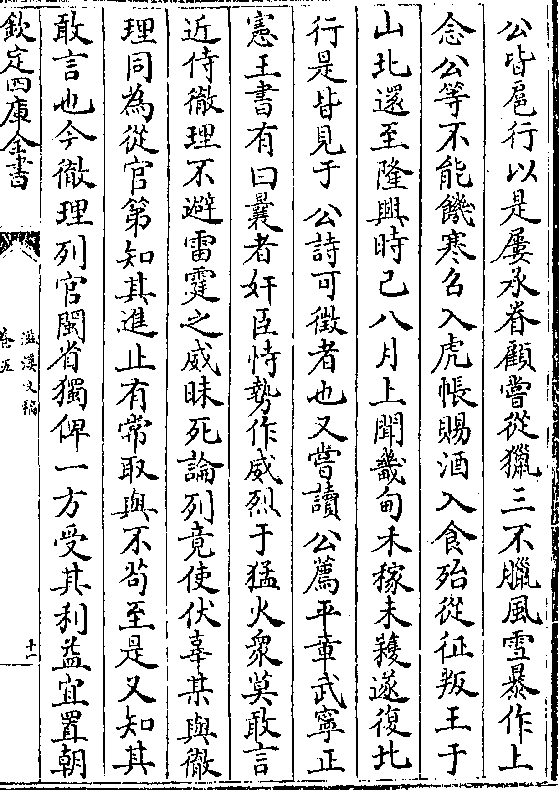 公皆扈行以是屢承眷顧嘗從獵三不臘風雪暴作上
念公等不能饑寒名入虎帳賜酒入食殆從征叛王于
山北還至隆興時己八月上聞畿甸禾稼未穫遂復北
行是皆見于公詩可徴者也又嘗讀公薦平章武寧正
憲王書有曰曩者奸臣恃勢作威烈于猛火衆莫敢言
近侍徹理不避雷霆之威昧死論列竟使伏辜某與徹
理同為從官第知其進止有常取與不茍至是又知其
敢言也今徹理列官閩省獨俾一方受其利益宜置朝
欽定四庫全書
滋溪文稿
卷五
十一